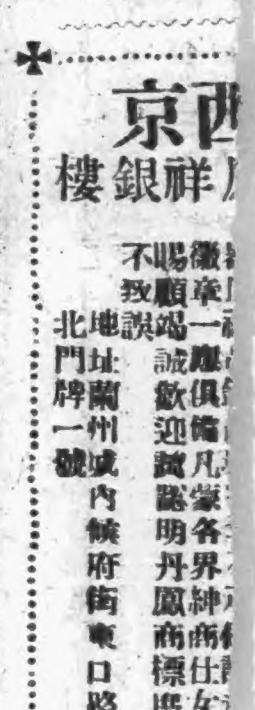 西京
祥銀樓
徽章一應俱備凡蒙各界紳商仕女
賜顧竭誠歡迎請認明丹鳳商標庶
不致誤
地址蘭州城內候府街東口路
北門牌一號